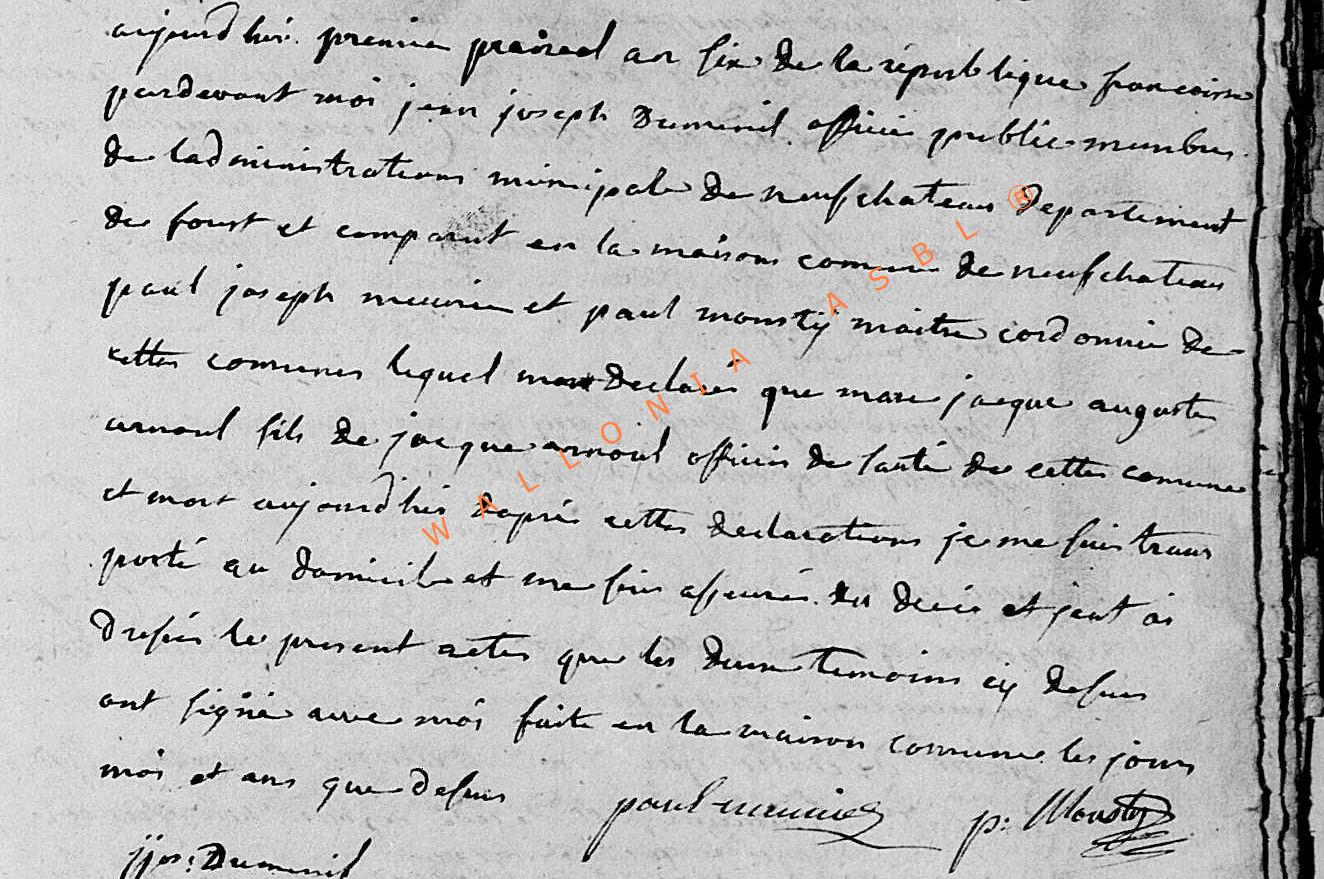 aujourdhui premier prairéal an six de la république francoisse
pardevant moi jean joseph Dumenil officié public membres
de ladministrations municipale de neufchateau departement
de forest et comparut en la maisons comune de neufchateau
paul joseph meunier et paul monsty maitre cordonnié de
cettes comunes lequel mont declarés que marc jacque auguste
arnoul fils de jacque arnoul officier de santé de cette comune
et mort aujourdhui daprés cettes declarations je me suis trans
porté au domicile et me suis assurés du décés et jant ai
dressés le present actes que les deux temoins cy dessus
ont signé avec moi faite en la maison comune les jours
mois et ans que dessus paul meunier p: Monsty
jjos: Dumenil
WALLONIA ASBL ®